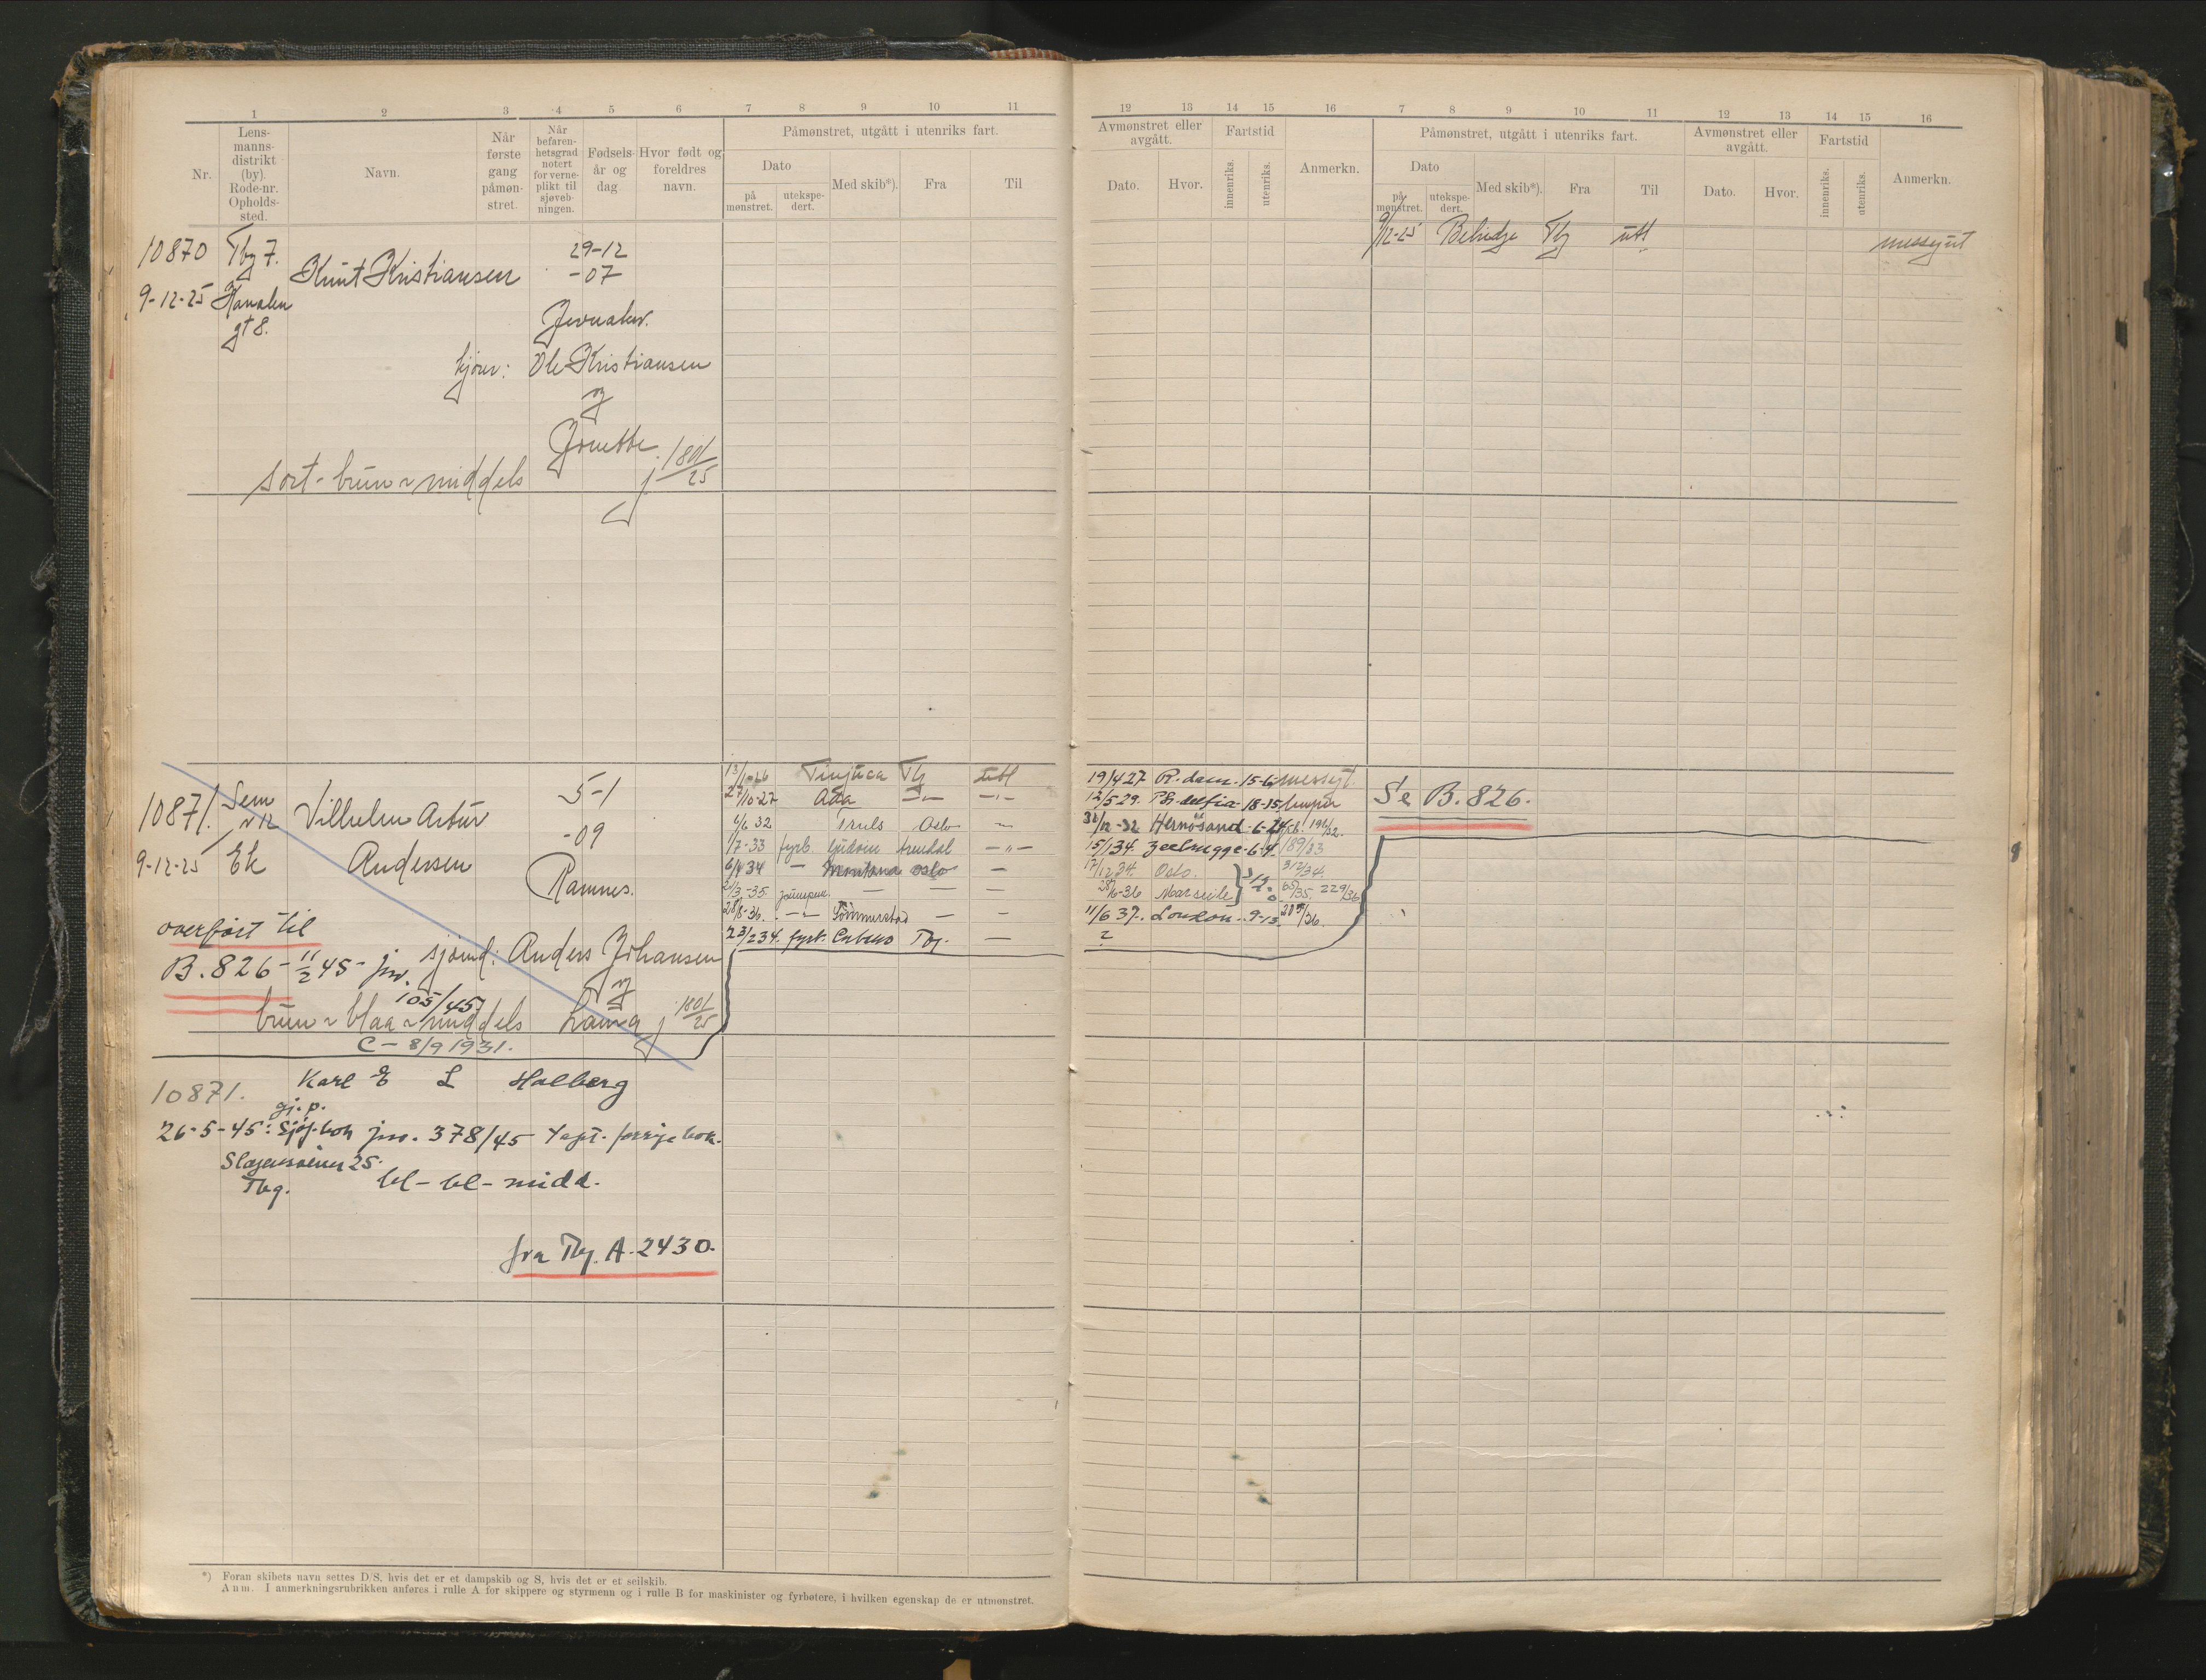 1 2 3 4 5 6 7 8 9 10 11
Nr.
Lens-
manns-
distrikt
(by).
Rode-nr.
Opholds-
sted.
Navn.
Når
første
gang
påmøn-
stret.
Når
befaren-
hetsgrad
notert
for verne-
plikt til
sjøveb-
ningen.
Fødsels-
år og
dag
Hvor født og
foreldres
navn.
Påmønstret, utgått i utenriks fart.
Dato
på
mønstret.
utekspe-
dert.
Med skib*).
Fra
Til
10870 Tbg 7. Knut Kristiansen 29-12
-07
9-12-25
gt 8.
Ole Kristiansen
og
180/25
sort - brun - middels
10871. Sem Vilhelm Artur 5-1
-09
9-12-25 Ek Andersen Ramnes.
overført til
B. 826 - 11/2 45 - jnr.
105/45
sjømd: Anders Johansen
og
brun - blaa - middels 180/25
C - 8/9 1931.
Tijuca Tbg utl
27/10-27 Ada
6/6 32 Truls Oslo
1/7-33 fyrb. Arendal
6/4 34 Montana Oslo
28/8-36. Sommerstad
23/2 34. fyrb. Tbg.
10871. Karl E L Holberg
gj. p.
26-5-45: Sjøf.bok jnr. 378/45 Tapt. forrige bok.
Slagensveien 25.
Tbg. bl - bl - midd.
fra Tbg. A. 2430.
*) Foran skibets navn settes D/S, hvis det er et dampskib og S, hvis det er et seilskib.
Anm. I anmerkningsrubrikken anføres i rulle A for skippere og styrmenn og i rulle B for maskinister og fyrbøtere, i hvilken egenskap de er utmønstret.
12 13 14 15 16 7 8 9 10 11 12 13 14 15 16
Avmønstret eller
avgått.
Dato.
Hvor.
Fartstid
innenriks.
utenriks.
Anmerkn.
Påmønstret, utgått i utenriks fart.
Dato
på
mønstret.
utekspe-
dert.
Med skib*).
Fra
Til
Avmønstret eller
avgått.
Dato.
Hvor.
Fartstid
innenriks.
utenriks.
Anmerkn.
9/12-25 Tbg utl messegut
19/4 27 R.dam. 15-6 messegt.
12/5 29. Ph-delfia 18-15 lemper
31/12-32 Hernösand
15/1 34. Zeebrugge 189/33
17/12 34. Oslo. 312/34.
28/6-36 Marseile 65/35. 229/36
11/6 37. London. 9-13.
?
Se B. 826.